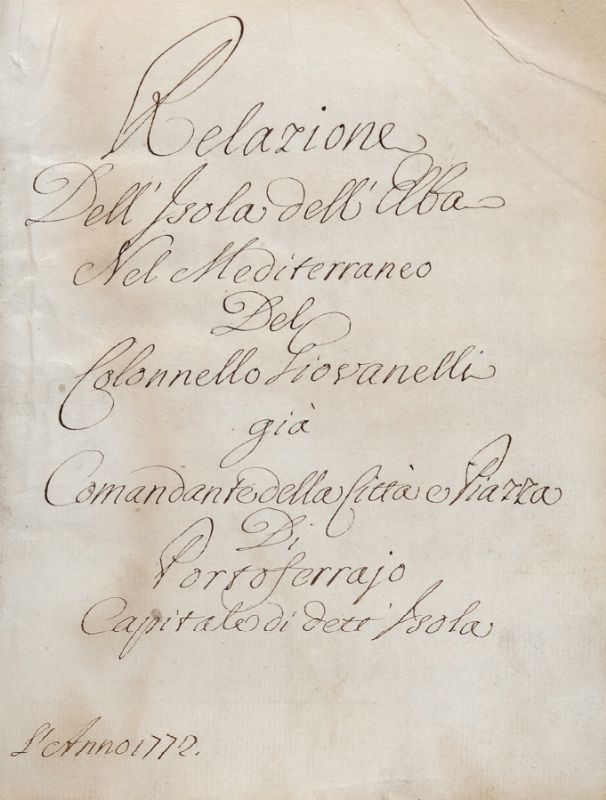 Relazione
Dell' Isola dell' Elba
Nel Mediterraneo
Del
Colonnello Giovanelli
già
Comandante della Città e Piazza
Di
Portoferrajo
Capitale di dett' Isola
L' Anno 1772.